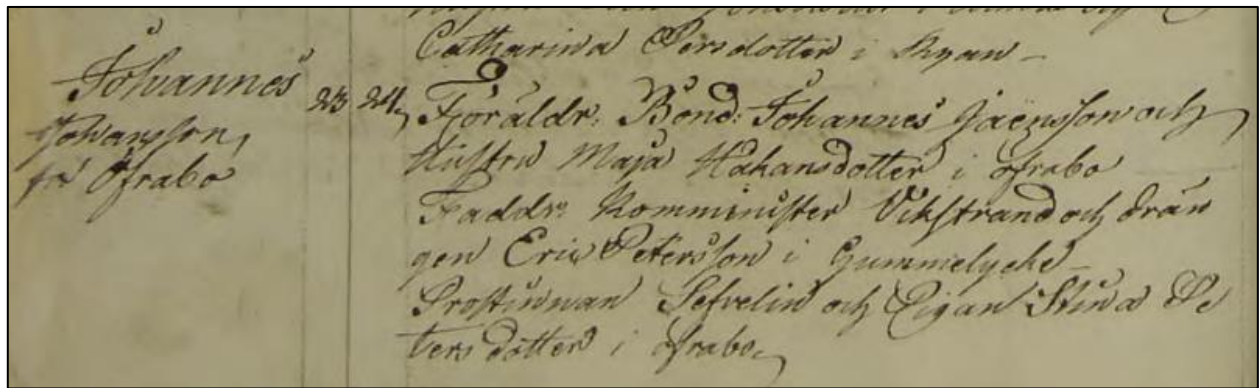 Catharina Persdotter i Ryan –
Johannes
Johansson
frå Ofrabo
23 24
Föräldr: Bond: Johannes Jaensson och
Hustru Maja Håkansdotter i ofrabo
Faddr: Komminister Vikstrand och drän
gen Eric Petersson i Gummelycke –
Prostinnan Sefvelin och Pigan Stina Pe
ters dotter i ofrabo